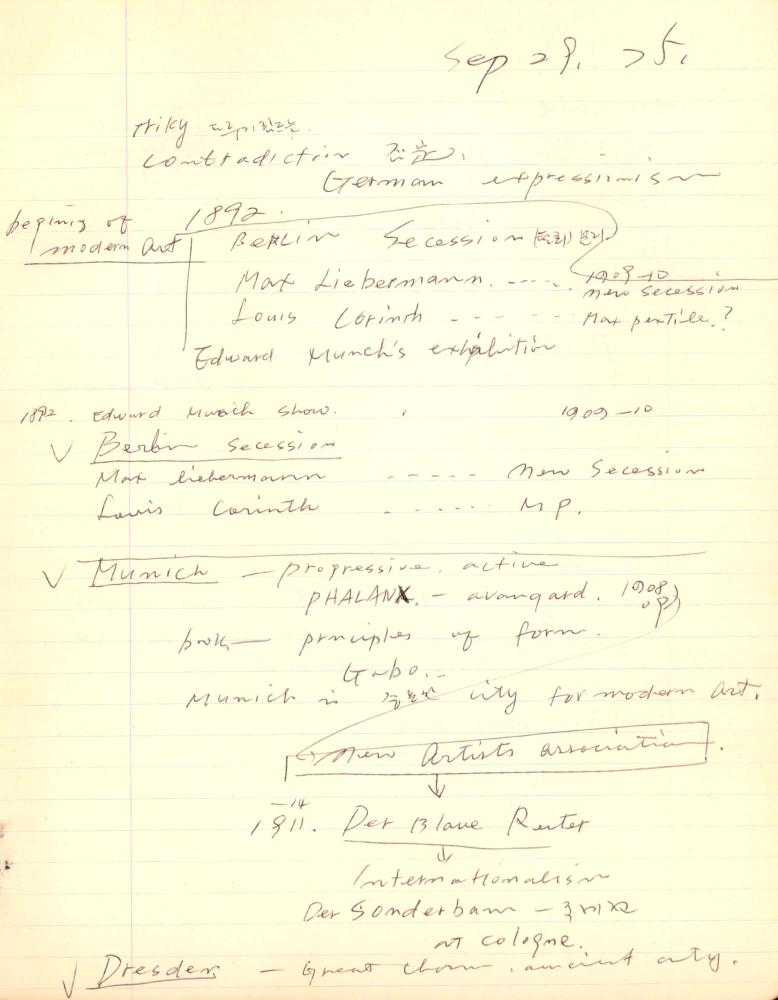 Sep 29, 75.
triky
contradiction 질문.
German expressionism
begining of 1892.
modern art Berlin Secession 분리
Max Liebermann. ----- 1909-10
new secession
Louis Corinth - - - - Max ?
Edward Munch's exhibition
1892. Edward Munich show. 1909-10
V Berlin secession
Max liebermann ----- new Secession
Louis Corinth - ----- M P.
V Munich - progressive. active
PHALANX. - avangard. 1908
09
book - principles of form.
Gabo.
Munich is city for modern art.
new Artists association.
↓
-14
1911. Der Blaue Reiter
↓
Internationalism
Der Sonderbam -
at cologne.
V Dresden - Great charm, ancient city.